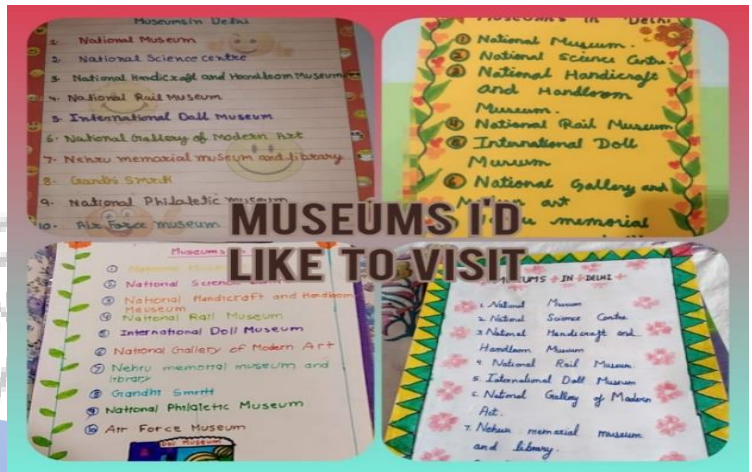 Museums in Delhi
1. National Museum
2. National Science centre
3. National Handicraft and Handloom Museum
4. National Rail Museum
5. International Doll Museum
6. National Gallery of Modern Art
7. Nehru memorial museum and library
8. Gandhi Smriti
9. National Philatetic museum
10. Air Force museum
Museums in Delhi
① National Museum.
② National Science Centre.
③ National Handicraft
and Handloom
Museum.
④ National Rail Museum
⑤ International Doll
Museum
⑥ National Gallery and
Modern art
memorial
MUSEUMS I'D
LIKE TO VISIT
Museums
① National
② National Science
③ National Handicraft and Handloom
Museum
④ National Rail Museum
⑤ International Doll Museum
⑥ National Gallery of Modern Art
⑦ Nehru memorial museum and
library
⑧ Gandhi Smriti
⑨ National Philatetic Museum
⑩ Air Force Museum
Doll Museum
MUSEUMS IN DELHI
1. National Museum
2. National Science Centre
3. National Handicraft and
Handloom Museum
4. National Rail Museum
5. International Doll Museum
6. National Gallery of Modern
Art.
7. Nehru memorial museum
and library.